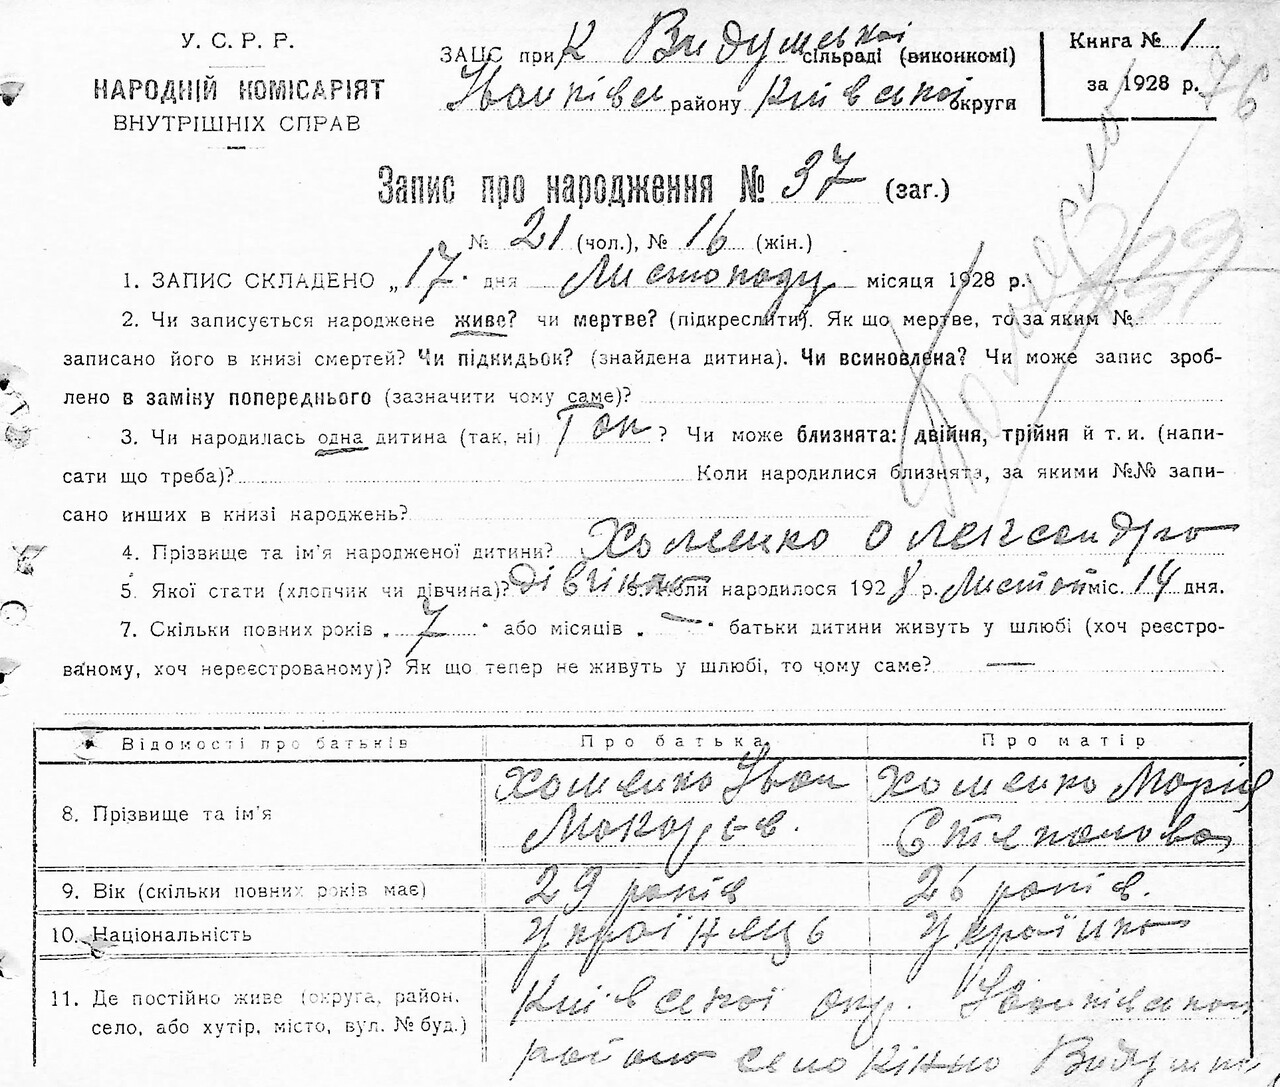 У. С. Р. Р.
НАРОДНІЙ КОМІСАРІЯТ
ВНУТРІШНІХ СПРАВ
ЗАЦС при К Видумської сільраді (виконкомі)
району Київської округи
Книга № 1
за 1928 р.
76
Запис про народження № 37 (заг.)
№ 21 (чол.), № 16 (жін.)
1. ЗАПИС СКЛАДЕНО „17" дня Листопаду місяця 1928 р.
2. Чи записується народжене живе? чи мертве? (підкреслити). Як що мертве, то за яким №
записано його в книзі смертей? Чи підкидьок? (знайдена дитина). Чи всиновлена? Чи може запис зроб-
лено в заміну попереднього (зазначити чому саме)?
3. Чи народилась одна дитина (так, ні) Так? Чи може близнята: двійня, трійня й т. и. (напи-
сати що треба)? Коли народилися близнята, за якими №№ запи-
сано инших в книзі народжень?
4. Прізвище та ім'я народженої дитини? Хоменко Олександра
5. Якої стати (хлопчик чи дівчина)? Дівчінка 6. Коли народилося 1928 р. Листоп міс. 14 дня.
7. Скільки повних років 7 або місяців — батьки дитини живуть у шлюбі (хоч реєстро-
ваному, хоч нереєстрованому)? Як що тепер не живуть у шлюбі, то чому саме? —
Відомості про батьків Про батька Про матір
8. Прізвище та ім'я Хоменко Іван Хоменко Марія
Макарьев. Степанова
9. Вік (скільки повних років має) 29 років 26 років.
10. Національність Українець Українка
11. Де постійно живе (округа, район, Київської окр.
село, або хутір, місто, вул. № буд.) району село